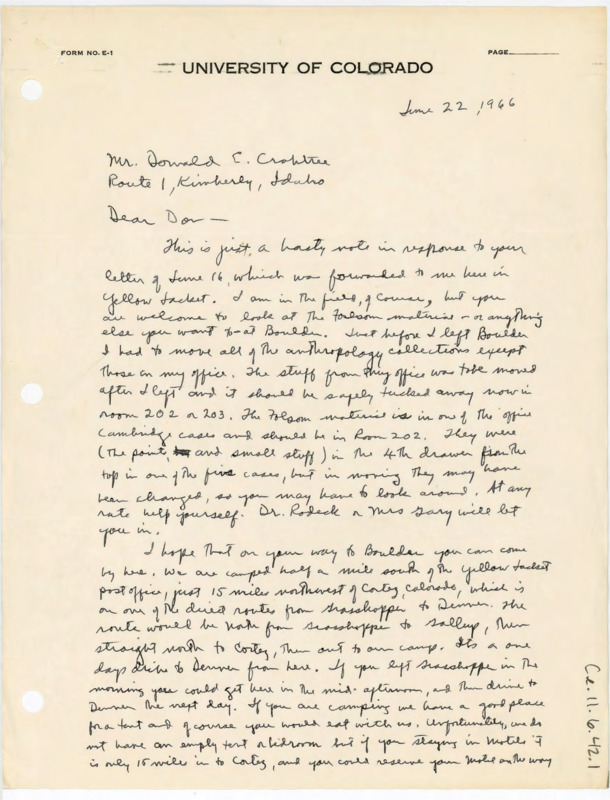 FORM NO. E-1
PAGE
UNIVERSITY OF COLORADO
June 22, 1966
Mr. Donald E. Crabtree
Route 1, Kimberly, Idaho
Dear Don —
This is just a hasty note in response to your
letter of June 16, which was forwarded to me here in
Yellow Jacket. I am in the field, of course, but you
are welcome to look at the Folsom material - or anything
else you want to - at Boulder. Just before I left Boulder
I had to move all of the anthropology collections except
those in my office. The stuff from my office was to be moved
after I left and it should be safely tucked away now in
room 202 or 203. The Folsom material is in one of the office
Cambridge cases and should be in Room 202. They were
(the points and small stuff) in the 4th drawer from the
top in one of the five cases, but in moving they may have
been changed, so you may have to look around. At any
rate help yourself. Dr. Rodeck or Mrs Gary will let
you in.
I hope that on your way to Boulder you can come
by here. We are camped half a mile south of the Yellow Jacket
post office, just 15 miles northwest of Cortez, Colorado, which is
on one of the direct routes from Grasshopper to Denver. The
route would be North from Grasshopper to Gallup, then
straight north to Cortez, then out to our camp. Its a one
days drive to Denver from here. If you left Grasshopper in the
morning you could get here in the mid-afternoon, and then drive to
Denver the next day. If you are camping we have a good place
for a tent and of course you would eat with us. Unfortunately, we do
not have an empty tent or bedroom but if you staying in Motels it
is only 15 miles in to Cortez, and you could reserve your Motel on the way
Ce.11.6.42.1